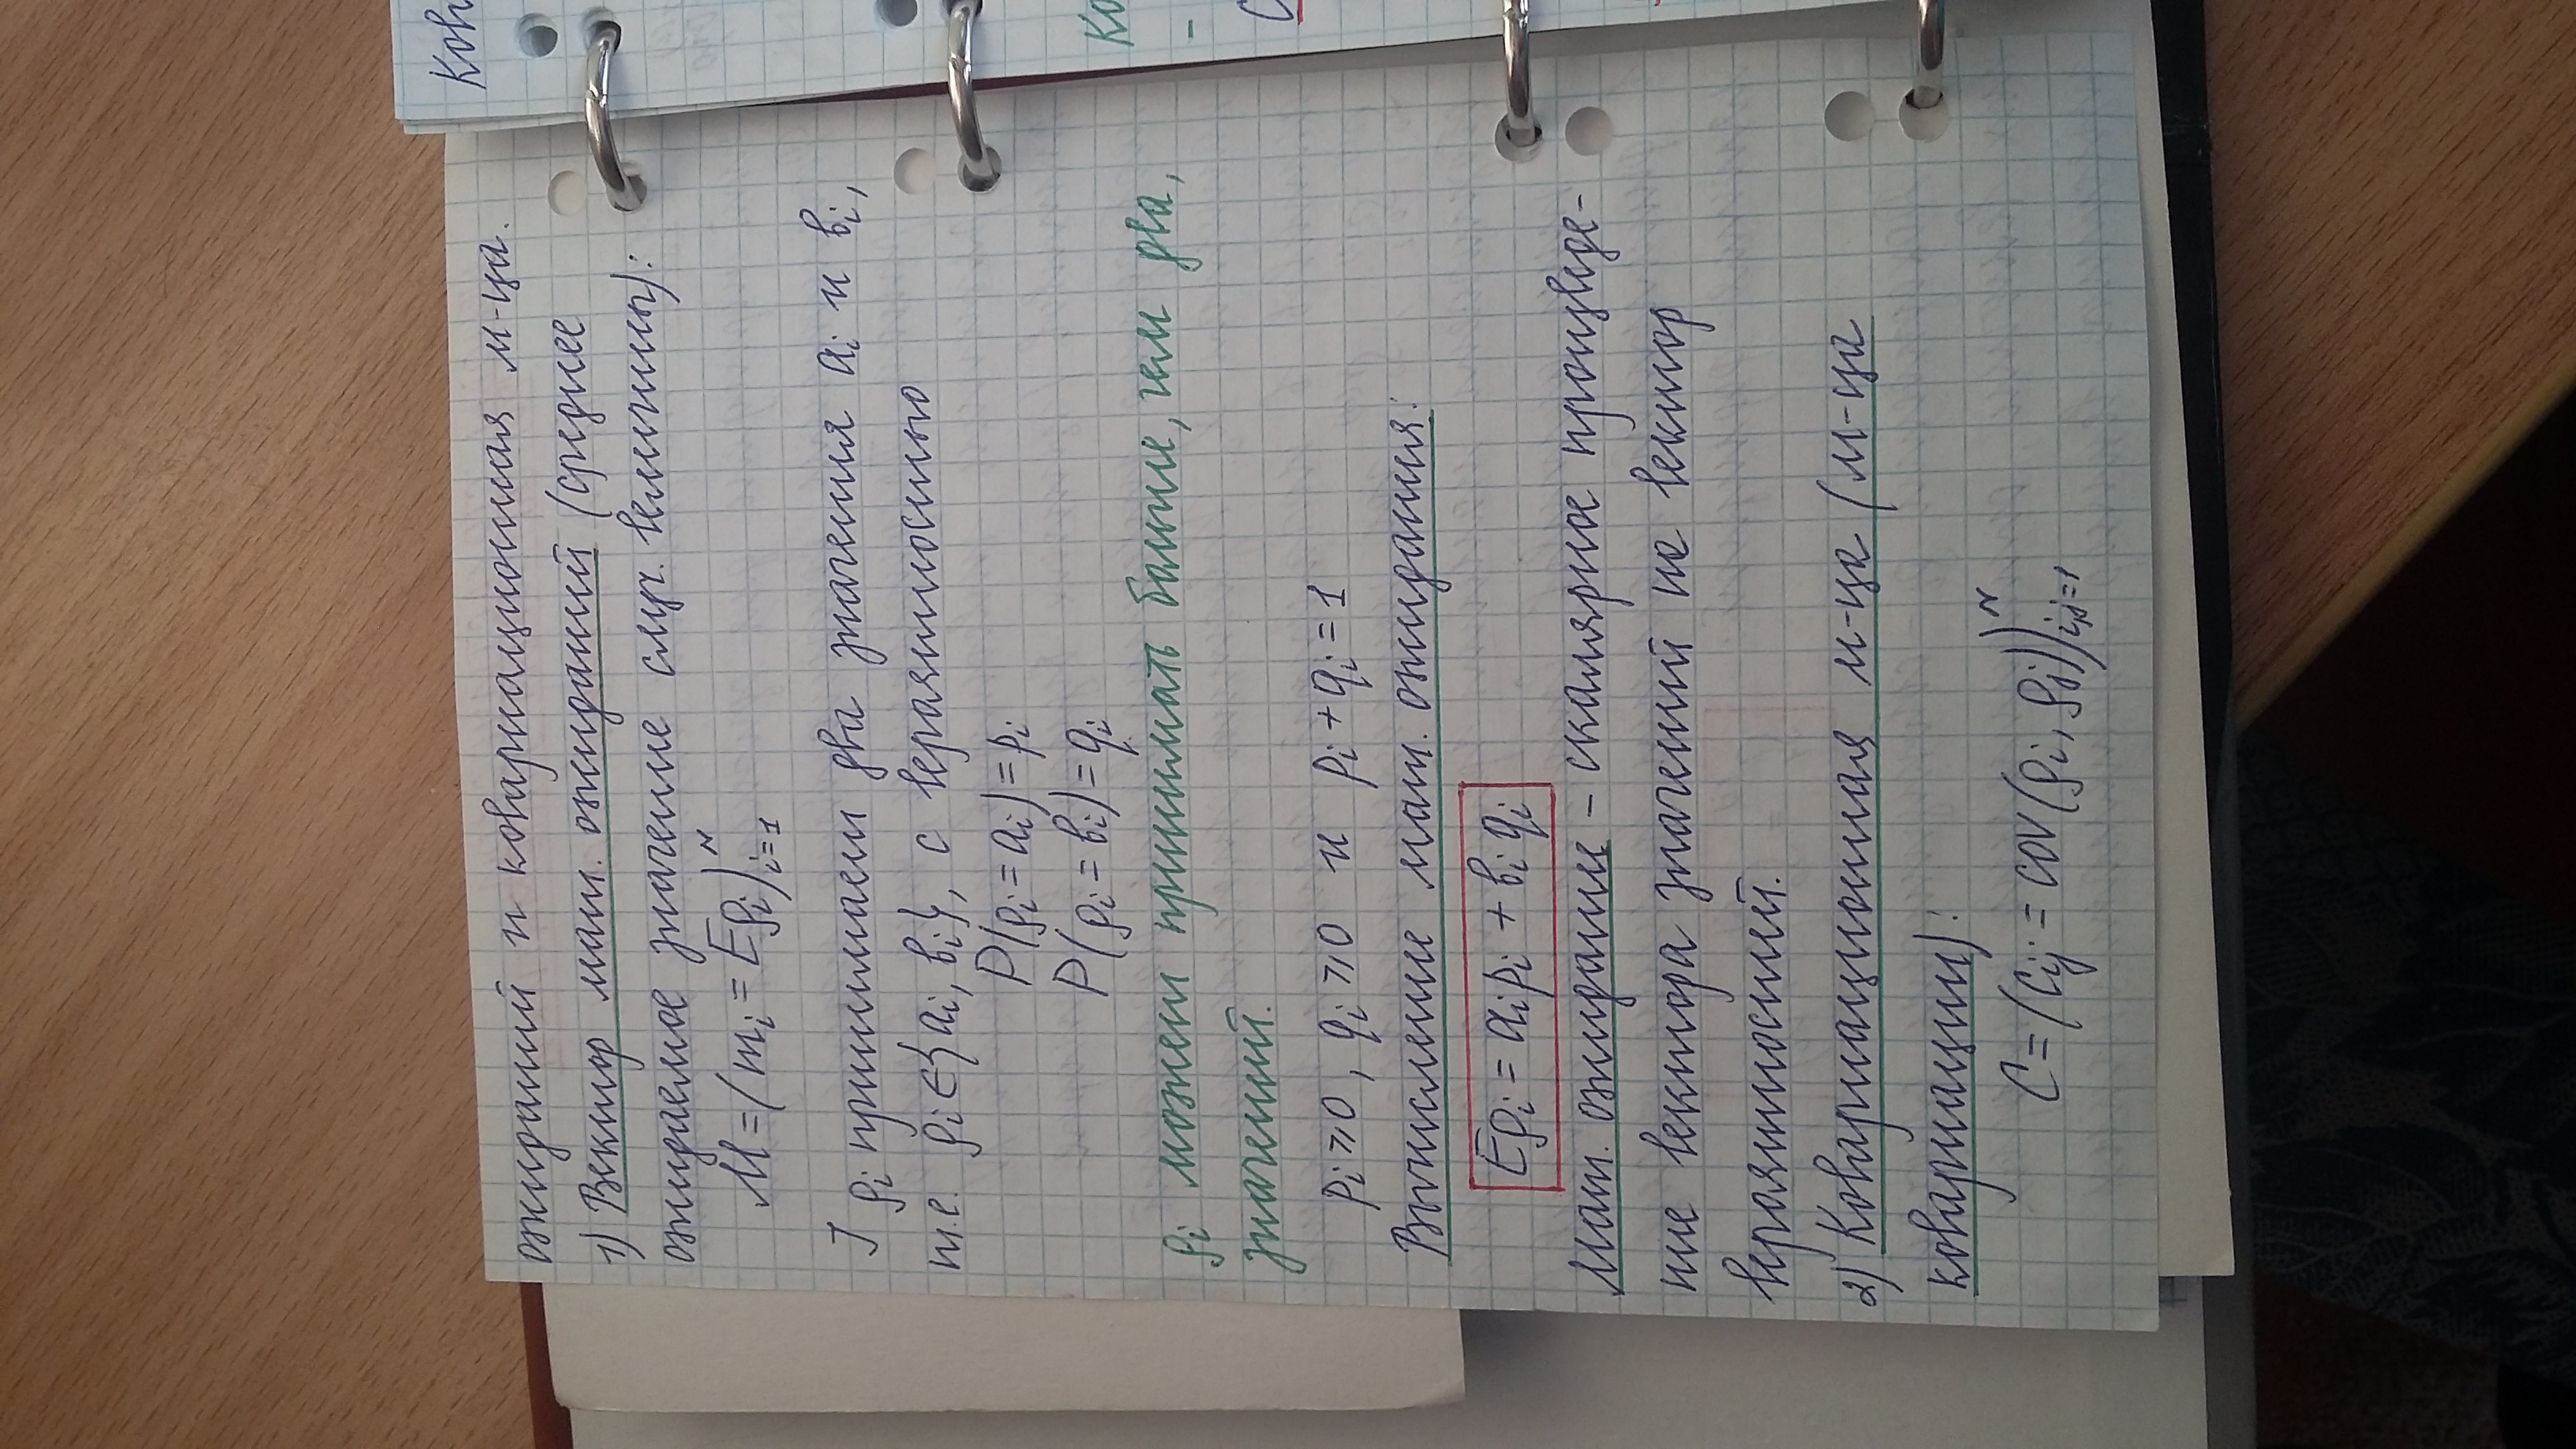 ожиданий и ковариационная м-ца.
1) Вектор мат. ожиданий (среднее
ожидаемое значение случ. величины):
M = (mᵢ = Eρᵢ)ᵢ₌₁ᴺ
] ρᵢ принимает два значения aᵢ и bᵢ,
т.е. ρᵢ ∈ {aᵢ, bᵢ}, с вероятностью
P(ρᵢ = aᵢ) = pᵢ
P(ρᵢ = bᵢ) = qᵢ
ρᵢ может принимать больше, чем два,
значений.
pᵢ ≥ 0, qᵢ ≥ 0 и pᵢ + qᵢ = 1
Вычисление мат. ожидания:
Eρᵢ = aᵢpᵢ + bᵢqᵢ
Мат. ожидание – скалярное произведе-
ние вектора значений на вектор
вероятностей.
2) Ковариационная м-ца (м-ца
ковариации):
C = (cᵢⱼ = cov(ρᵢ, ρⱼ))ᵢ,ⱼ₌₁ᴺ